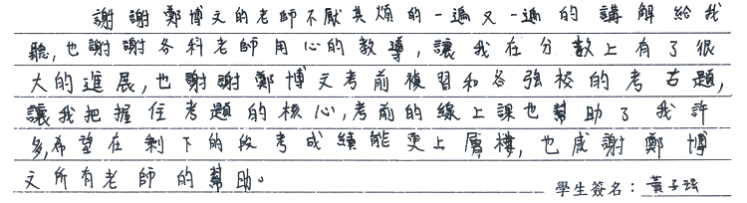 謝謝鄭博文的老師不厭其煩的一遍又一遍的講解給我
聽,也謝謝各科老師用心的教導,讓我在分數上有了很
大的進展,也謝謝鄭博文考前複習和各強校的考古題,
讓我把握住考題的核心,考前的線上課也幫助了我許
多,希望在剩下的段考成績能更上層樓,也感謝鄭博
文所有老師的幫助。
學生簽名:黃子